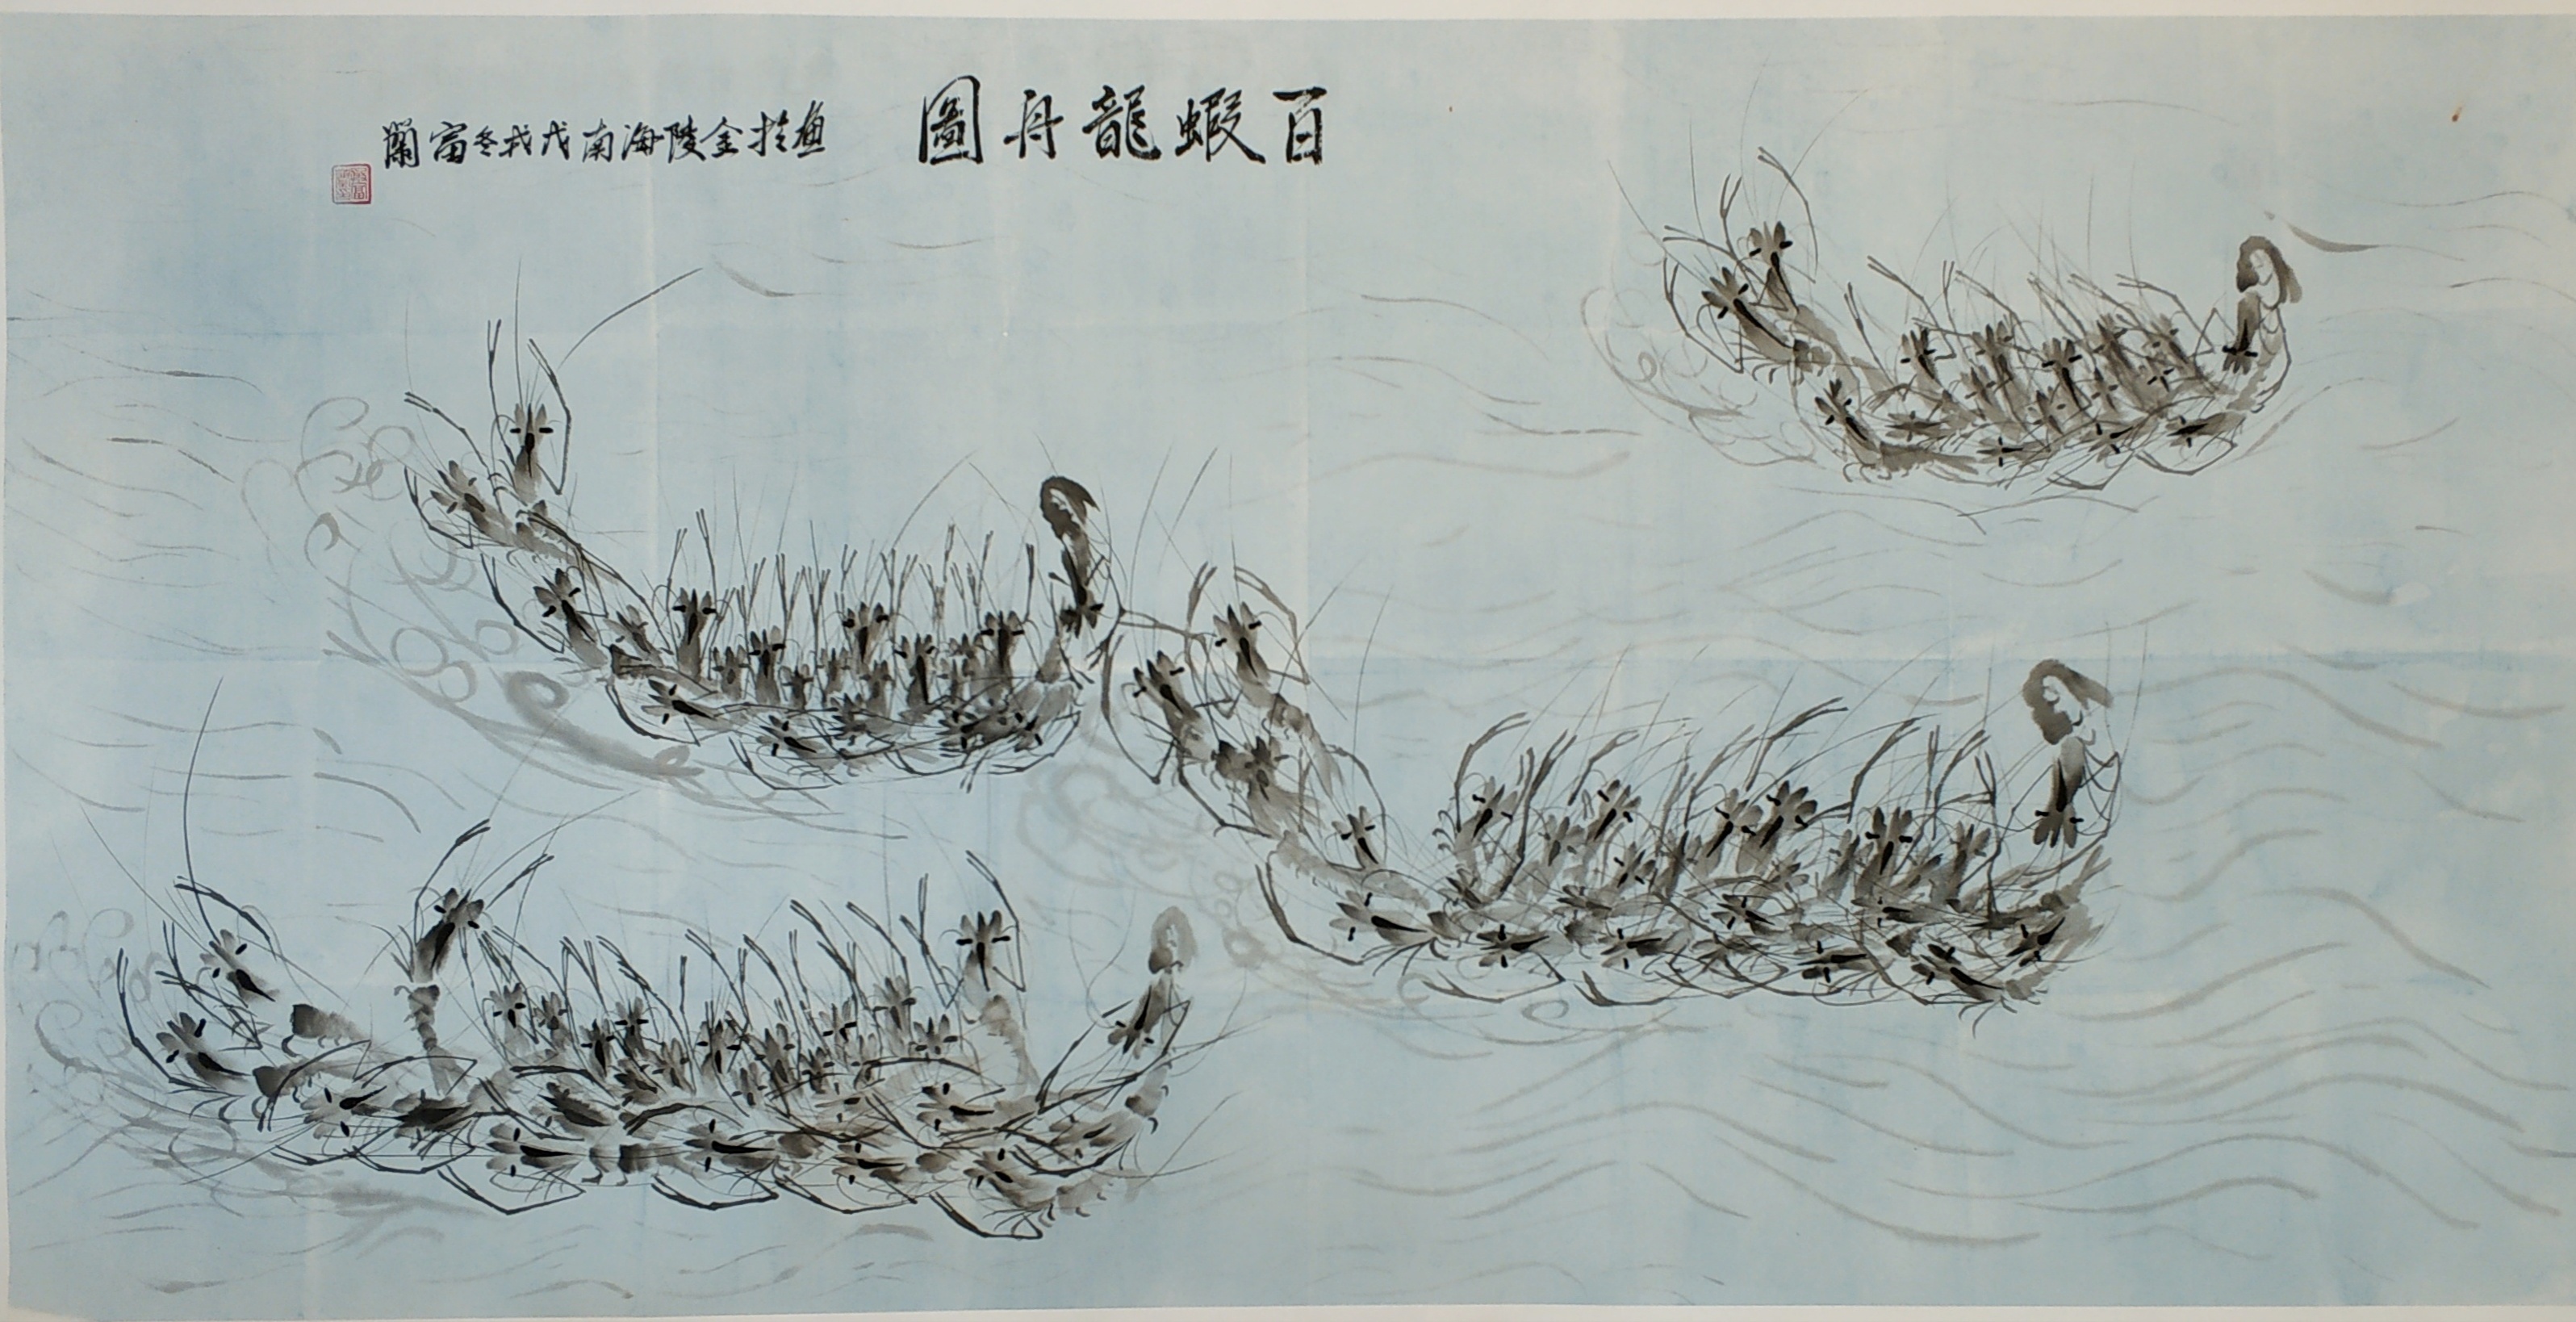 百蝦龍舟圖
畫於金陵海南戊戌冬富蘭